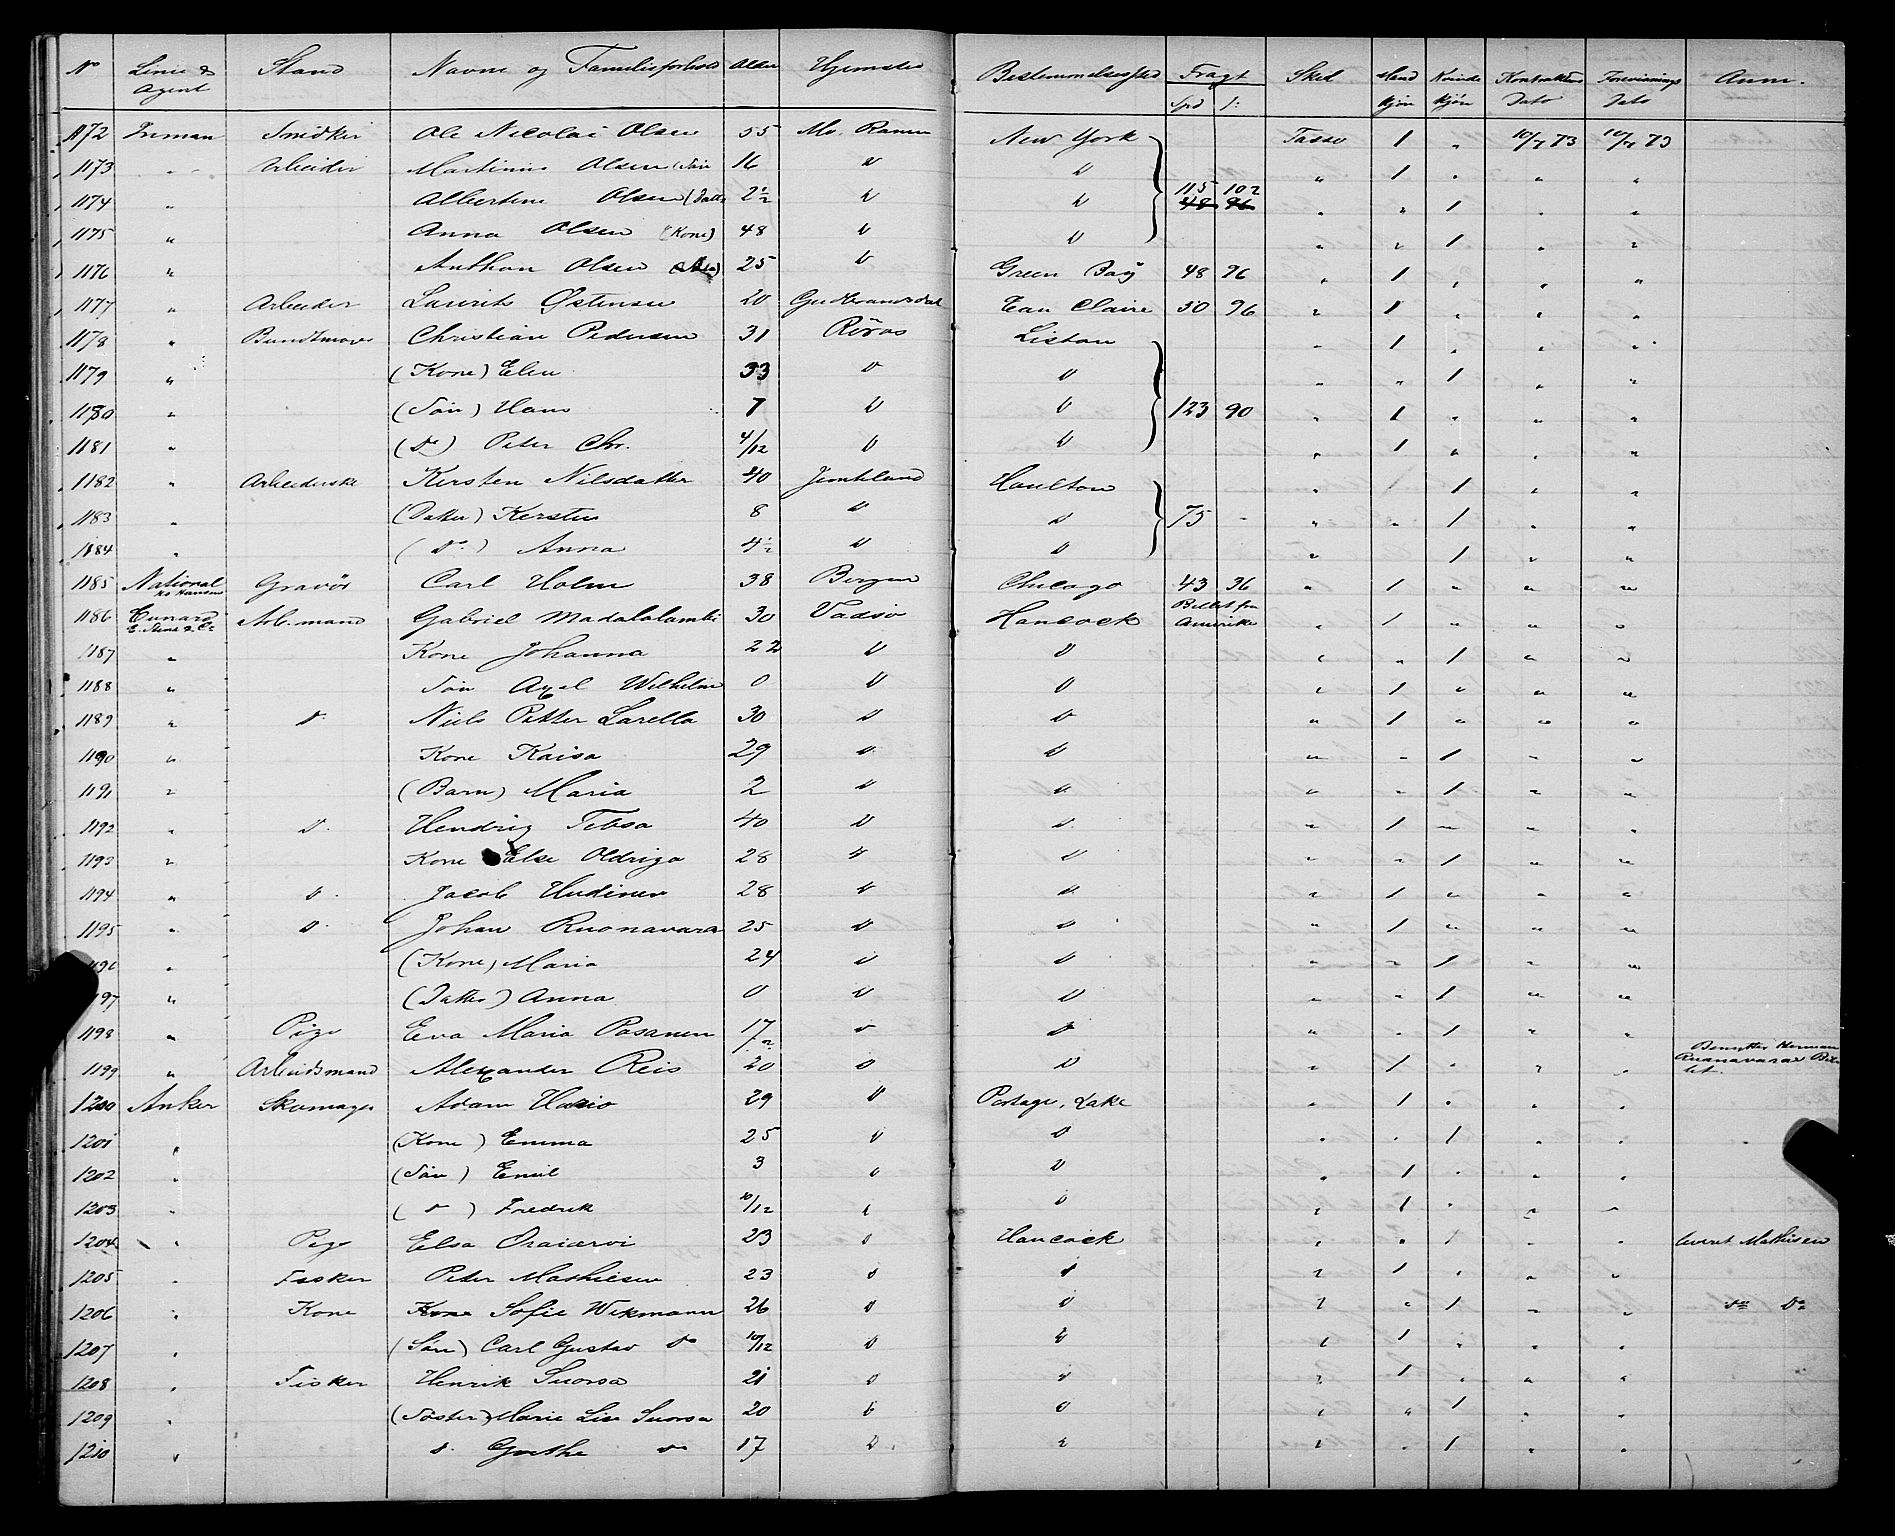 No Linie & Agent Stand Navne og Familieforhold Alder Hjemsted Bestemmelsessted Fragt Spd ß: Skib Mand kjøn Kvinde kjøn Kontraktens Dato Forevisnings Dato Anm.
1172 Inman Smidker Ole Nicolai Olsen 55 Mo. Ranen New York Tasso 1 " 10/7 73 10/7 73
1173 " Arbeider Martinus Olsen (Søn 16 D D " 1 " " "
1174 " Albertine Olsen (Datt 2½ D D 115 102 48 96 " " 1 " "
1175 " Anna Olsen (Kone) 48 D D " " 1 " "
1176 " Anthon Olsen 25 D Green Bay 48 96 " 1 " " "
1177 " Arbeider Laurits Østensen 20 Gudbrandsdal Eau Claire 50 96 " 1 " " "
1178 " Bundtmager Christian Pedersen 31 Röros Liston " 1 " " "
1179 " (Kone) Elen 33 D D " " 1 " "
1180 " (Søn) Hans 7 D D 123 90 " 1 " " "
1181 " (Do) Peter Chr. 4/12 D D " 1 " " "
1182 " Arbeiderske Kersten Nilsdatter 40 Jemtland Houlton " 1 " "
1183 " (Datter) Kersten 8 D D 75 - " " 1 " "
1184 " (Do) Anna 4½ D D " 1 " "
1185 National Hansen Gravör Carl Holm 38 Bergen Chicago 43 36 " 1 " " "
1186 Cunard Arb. mand Gabriel Madalalambi 30 Vadsö Hancock Billet fra Amerika " 1 " " "
1187 " Kone Johanna 22 D D " " 1 " "
1188 " Søn Axel Wilhelm 0 D D " 1 " " "
1189 " D Niels Petter Larella 30 D D " 1 " " "
1190 " Kone Kaisa 29 D D " " 1 " "
1191 " (Barn) Maria 2 D D " " 1 " "
1192 " D. Hendrig Tebsa 40 D D " 1 " " "
1193 " Kone Else Oldriga 28 " D " " 1 " "
1194 " D. Jacob Hudinen 28 D D " 1 " " "
1195 " D. Johan Ruonavara 25 D D " 1 " " "
1196 " (Kone) Maria 24 D D " " 1 " "
1197 " (Datter) Anna 0 D D " " 1 " "
1198 " Pige Eva Maria Pasanen 17½ D D " " 1 " "
1199 " Arbeidsmand Alexander Reis 20 D D " 1 " " " Benytter Herman Ruanavaras Billet.
1200 Anker Skomager Adam Hario 29 D Portage Lake " 1 " " "
1201 " (Kone) Emma 25 D D " " 1 " "
1202 " (Søn) Emil 3 D D " 1 " " "
1203 " (D) Fredrik 10/12 " D " 1 " " "
1204 " Pige Eilsa Oraiærvi 23 D Hancock " " 1 " " Mathisen
1205 " Fisker Peter Mathiesen 23 D D " 1 " " "
1206 " Kone Kone Sofie Wekmann 26 D D " " 1 " " Do Do
1207 " (Søn) Carl Gustav Do 10/12 D D " 1 " " "
1208 " Fisker Henrik Suorsa 21 D D " 1 " " "
1209 " (Søster) Marie Lise Suorsa 20 D D " " 1 " "
1210 " D. Grethe Do 17 D D " " 1 " "